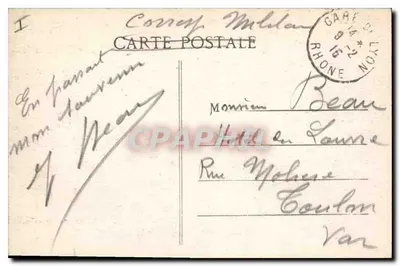 I
CARTE POSTALE
GARE DE LYON
14 *
8 - 2
15
RHONE
En passant
mon souvenir
Beau
Monsieur Beau
Hotel du Louvre
Rue Molière
Toulon
Var
Cartorum